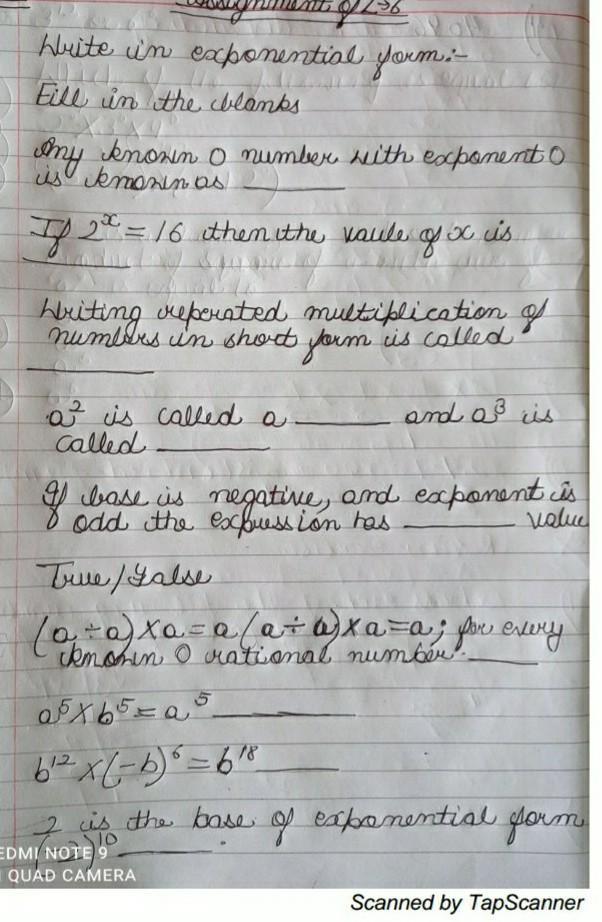 Assignment of L-6
Write in exponential form:-
Fill in the blanks
Any known 0 number with exponent 0
is known as ______
If 2^x = 16 then the vaule of x is
______
Writing reperated multiplication of
numbers in short form is called
______
a² is called a ______ and a³ is
called ______
If base is negative, and exponent is
odd the expression has ______ value
True/False
(a ÷ a) X a = a (a ÷ a) x a = a; for every
known 0 rational number. ______
a⁵ X b⁵ = a⁵ ______
b¹² x (-b)⁶ = b¹⁸ ______
2 is the base of exponential form
(-2)¹⁰ ______.
REDMI NOTE 9
AI QUAD CAMERA
Scanned by TapScanner